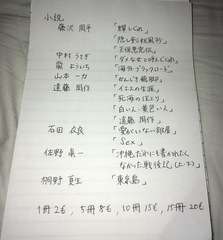 小説
藤沢 周平 「蝉しぐれ」
「隠し剣秋風抄」
「天保悪党伝」
中村 うさぎ 「ダメな女と呼んでくれ」
「海外ブラックロード」
山本 一力 「かんじき飛脚」
遠藤 周作 「イエスの生涯」
「死海のほとり」
「白い人・黄色い人」
「遠藤 周作」
石田 衣良 「愛がいない部屋」
「Sex」
佐野 眞一 「沖縄だれにも書かれたく
なかった戦後史(上・下)」
桐野 夏生 「東京島」
1冊2€, 5冊8€, 10冊15€, 15冊20€